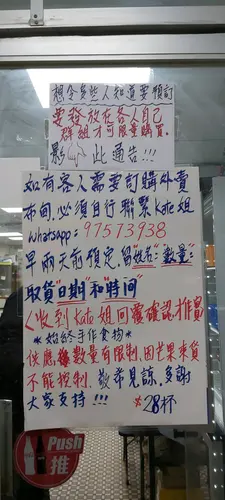 想令多些人知道要預訂
要發放在各人自己
群組才可限量購買.
影 此通告!!!
如有客人需要訂購外賣
布甸,必須自行聯繫Kate姐
Whatsapp: 97573938
早兩天前預定,留"姓名":"數量":
取貨"日期"和"時間"
<收到Kate姐回覆確認才作實>
*始終手作食物*
供應數量有限制,因芒果來貨
不能控制.敬希見諒,多謝
大家支持!!!
*28杯
Push
推